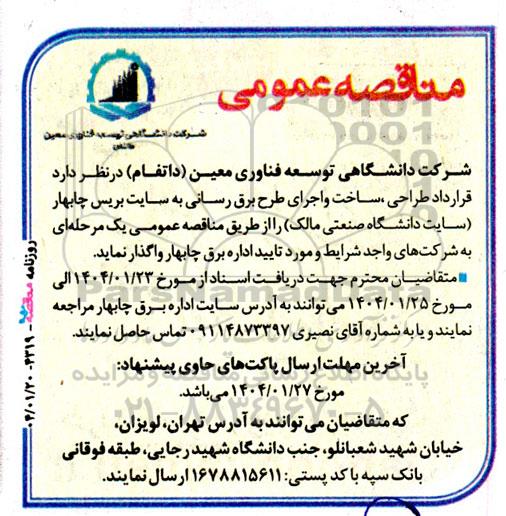 مناقصه عمومی
شرکت دانشگاهی توسعه فناوری معین
داتفام
شرکت دانشگاهی توسعه فناوری معین (داتفام) درنظر دارد
قرارداد طراحی ،ساخت واجرای طرح برق رسانی به سایت بریس چابهار
(سایت دانشگاه صنعتی مالک) رااز طریق مناقصه عمومی یک مرحله‌ای
به شرکت‌های واجد شرایط و مورد تایید اداره برق چابهار واگذار نماید.
متقاضیان محترم جهت دریافت اسناد از مورخ ۱۴۰۴/۰۱/۲۳ الی
مورخ ۱۴۰۴/۰۱/۲۵ می‌توانند به آدرس سایت اداره برق چابهار مراجعه
نمایند و یا به شماره آقای نصیری ۰۹۱۱۴۸۷۳۳۹۷ تماس حاصل نمایند.
آخرین مهلت ارسال پاکت‌های حاوی پیشنهاد:
مورخ ۱۴۰۴/۰۱/۲۷ می‌باشد.
که متقاضیان می‌توانند به آدرس تهران، لویزان،
خیابان شهید شعبانلو، جنب دانشگاه شهید رجایی، طبقه فوقانی
بانک سپه با کد پستی: ۱۶۷۸۸۱۵۶۱۱ ارسال نمایند.
روزنامه مناقصه - ۴۳۱۹ - ۰۴/۰۱/۲۰
ParsNamadData
پایگاه اطلاع رسانی مناقصه و مزایده
۰۲۱-۸۸۳۴۹۶۷۰-۵